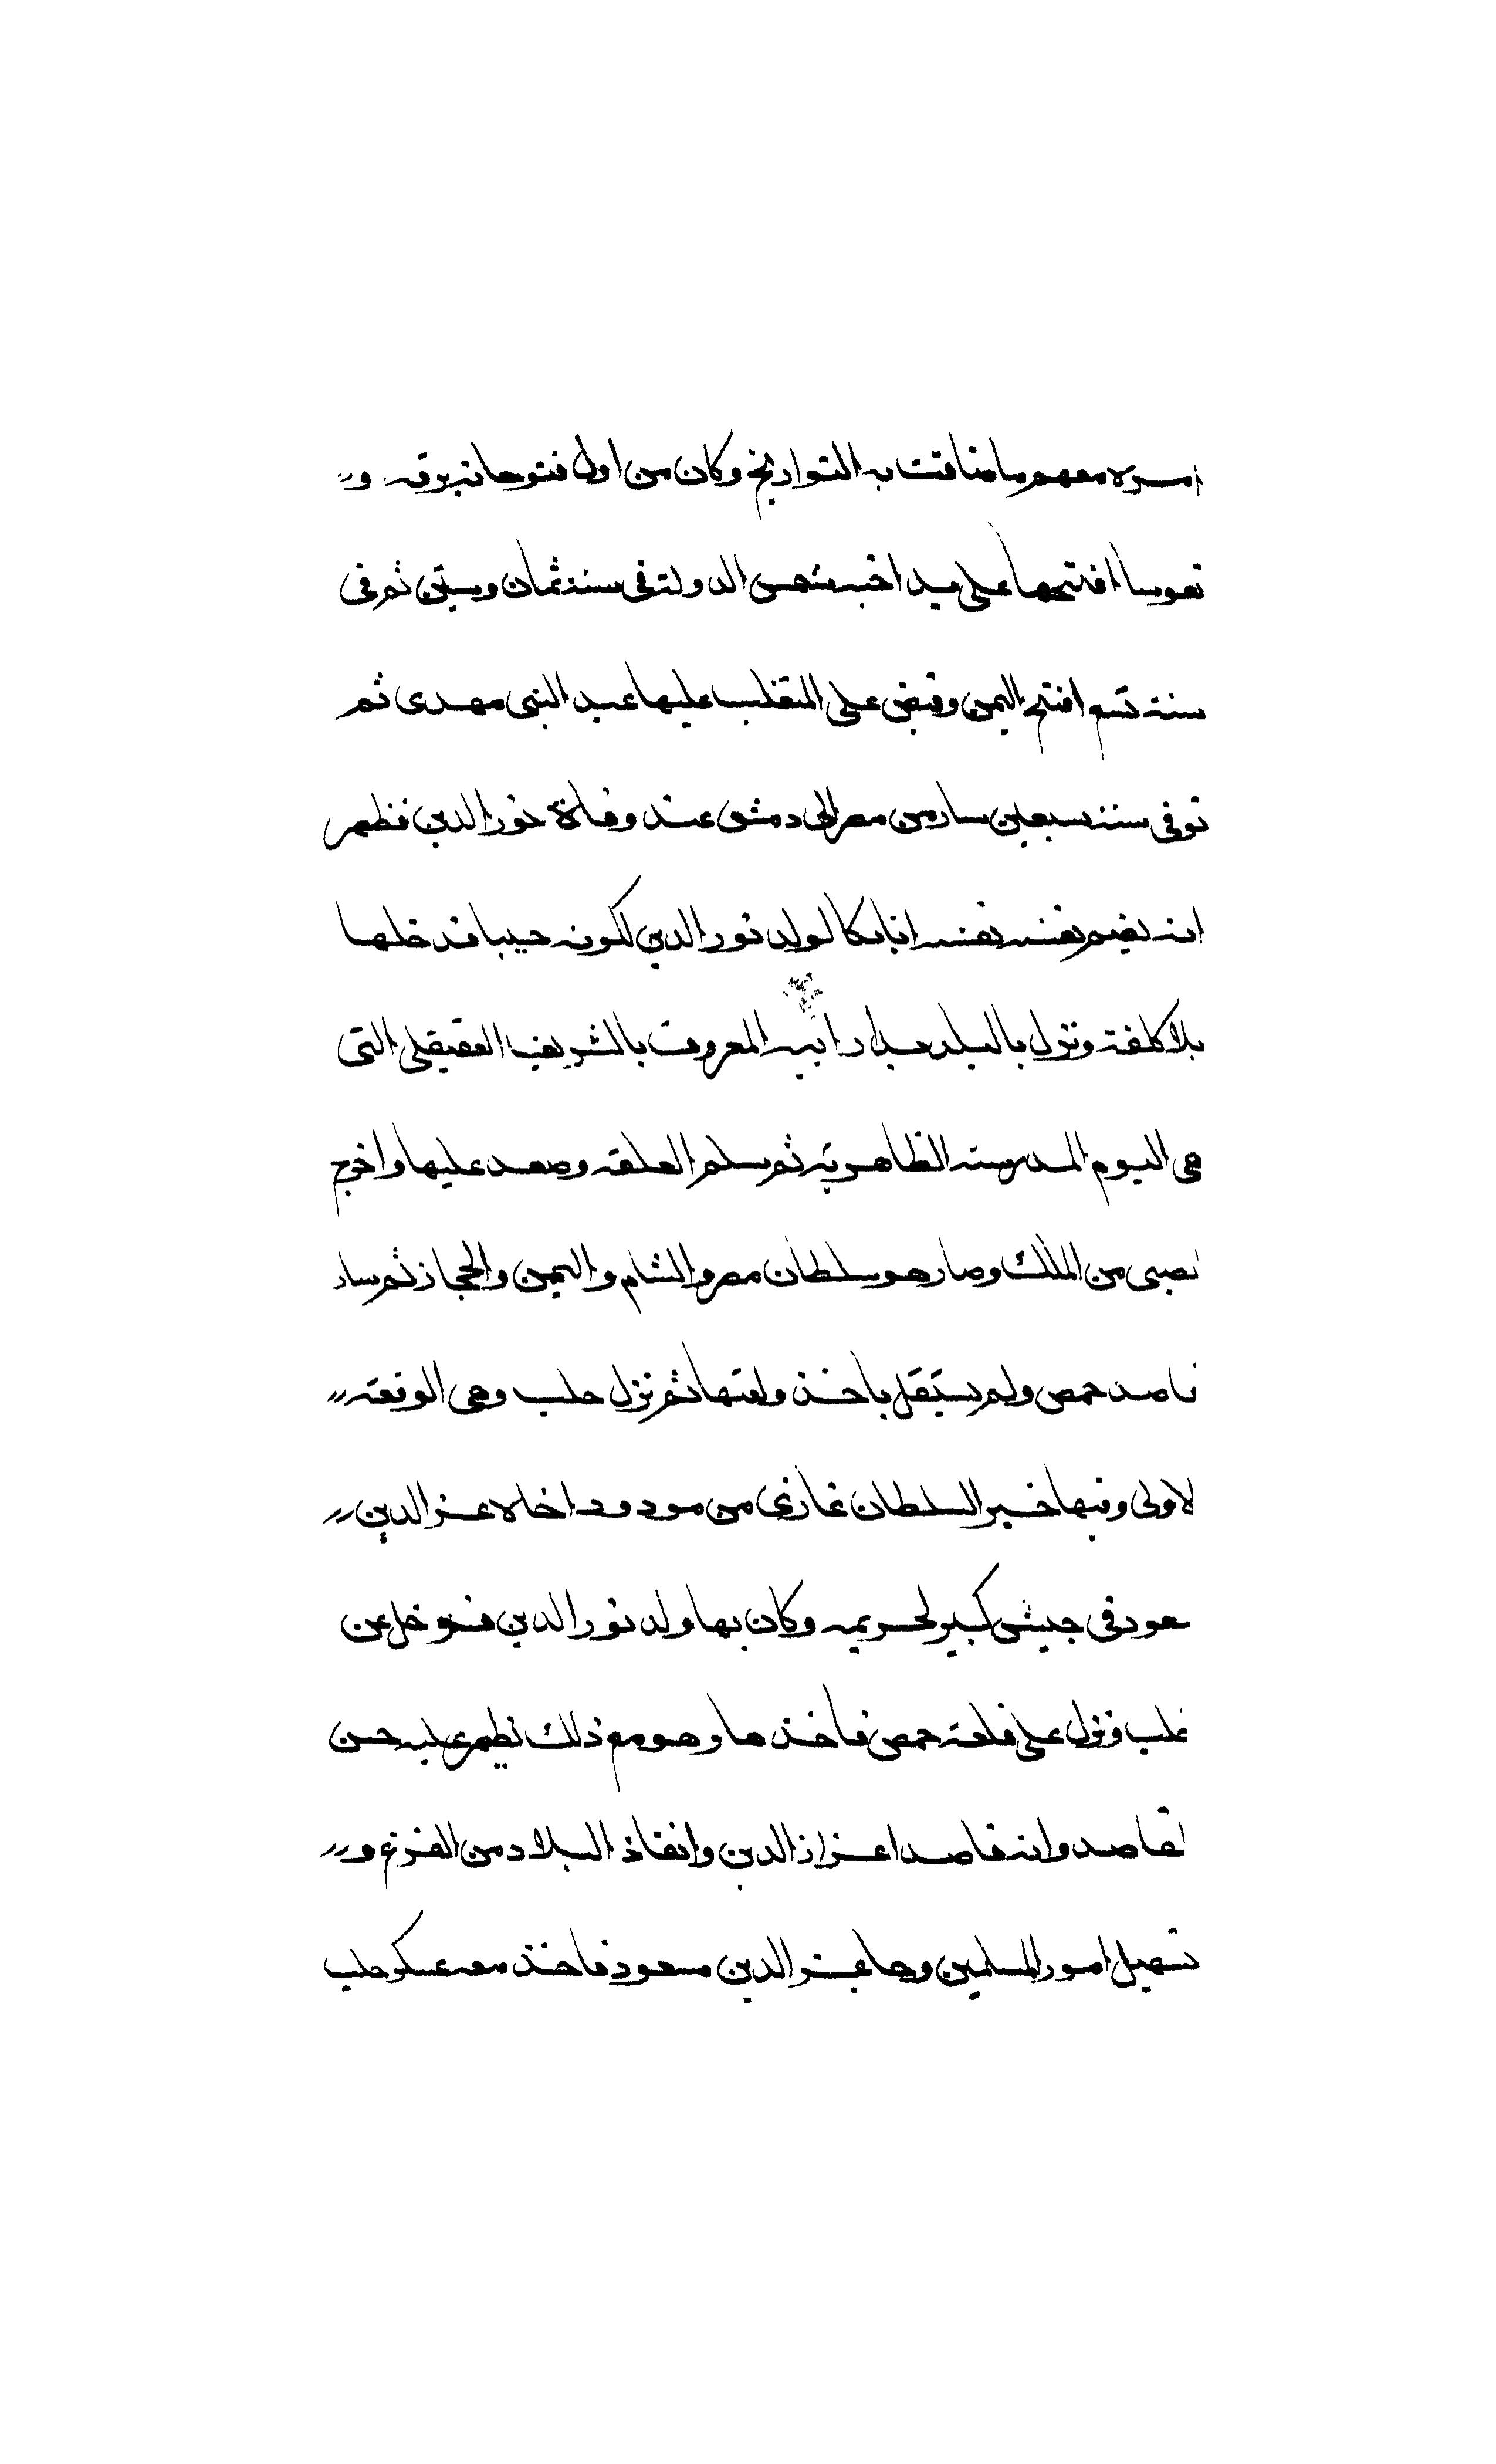 امره معهم ما ضاقت به التواريخ وكان من اول فتوحاته برقه و
نفوسا افتتحها على يد اخيه شمس الدولة في سنة ثمان وستين ثم في
سنة تسع افتتح اليمن وقبض على المتغلب عليها عبد النبي مهدى ثم
توفي سنة سبعين سار من مصر الى دمشق عند وفاة نور الدين فظهر
انه يقيم نفسه نفسه اتابكا لولد نور الدين لكونه صبيا فدخلها
بلا كلفة ونزل بالبلد بدار ابيه المعروف بالشريف العقيقلى التى
هي اليوم المدرسة الظاهرية ثم تسلم القلعة وصعد عليها واخرج
لصبى من الملك وصار هو سلطان مصر والشام واليمن والحجاز ثم سار
قاصد حمص ولم يشتغل باخذ ولعتها ثم نزل حلب وهى الوقعة
لاولى وفيها خبر السلطان غازى من مودود اخاه عز الدين
سعود في جيش كبير لحربه وكان بها ولد نور الدين فترحل عن
حلب ونزل على قلعة حمص فاخذها وهو مع ذلك يظهر عليه حسن
لقاصد وانه قاصد اعزاز الدين وانقاذ البلاد من الفرنج و
تسهيل امور المسلمين وجا عز الدين مسعود فاخذ معه عسكر حلب